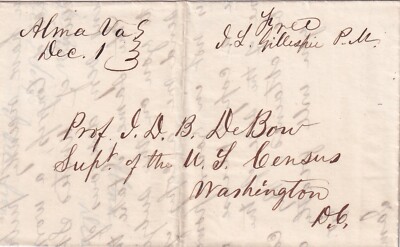 Alma Va
Dec. 1
Free
J. L. Gillespie P. M.
Prof. J. D. B. DeBow
Supt. of the U. S. Census
Washington
D.C.